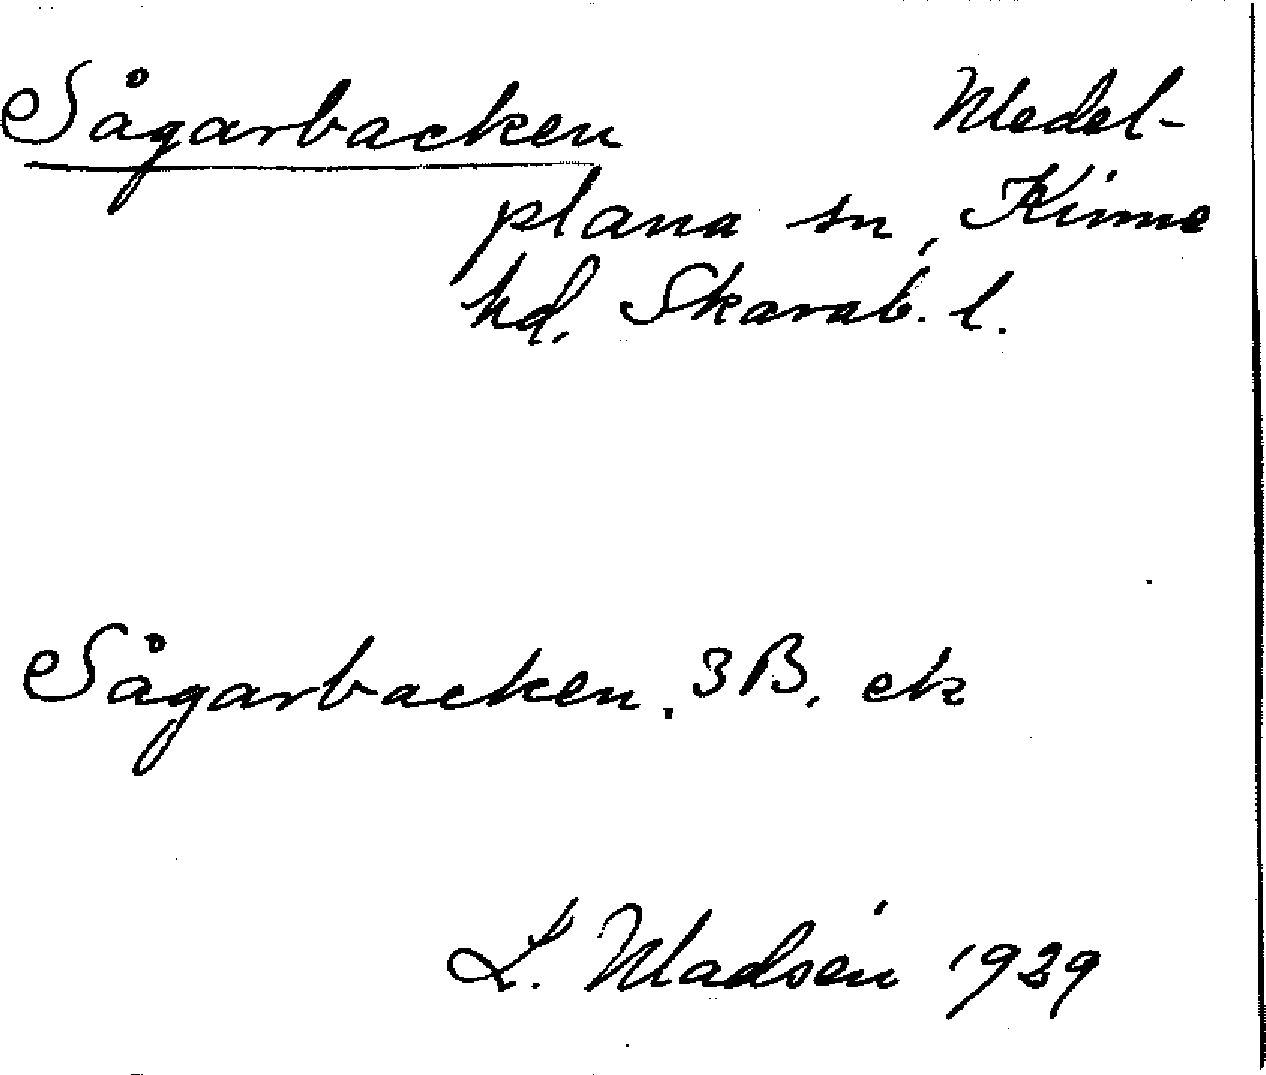 Sågarbacken Medel-
plana sn, Kinne
hd. Skarab. l.
Sågarbacken. 3B. ek
L. Madsén 1939